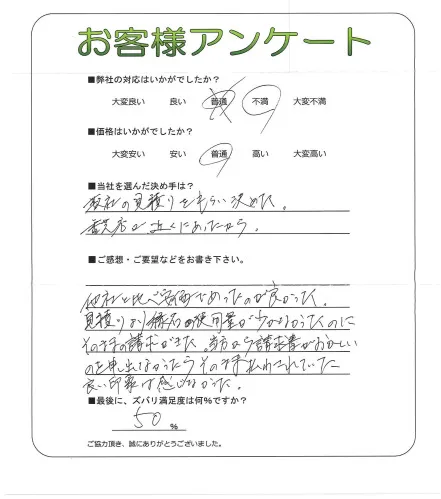 お客様アンケート
■弊社の対応はいかがでしたか?
大変良い 良い 普通 不満 大変不満
■価格はいかがでしたか?
大変安い 安い 普通 高い 大変高い
■当社を選んだ決め手は?
数社の見積りをもらい決めた。
店が近くにあったから。
■ご感想・ご要望などをお書き下さい。
他社と比べ安価であったのが良かった。
見積りより縁石の使用量が少なかったのに
そのままの請求がきた。当方から請求書がおかしい
のを申し出なかったらそのまま払わされていた
良い印象は感じなかった。
■最後に、ズバリ満足度は何%ですか?
50 %
ご協力頂き、誠にありがとうございました。